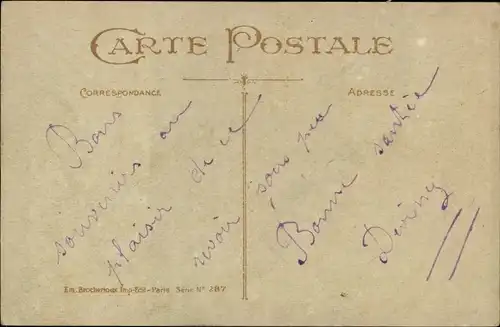 CARTE POSTALE
CORRESPONDANCE
ADRESSE
Bons
souvenirs au
plaisir de ce
revoir
sous peu
Bonne santée
Em. Brocherioux Imp-Édit-Paris Série N° 287